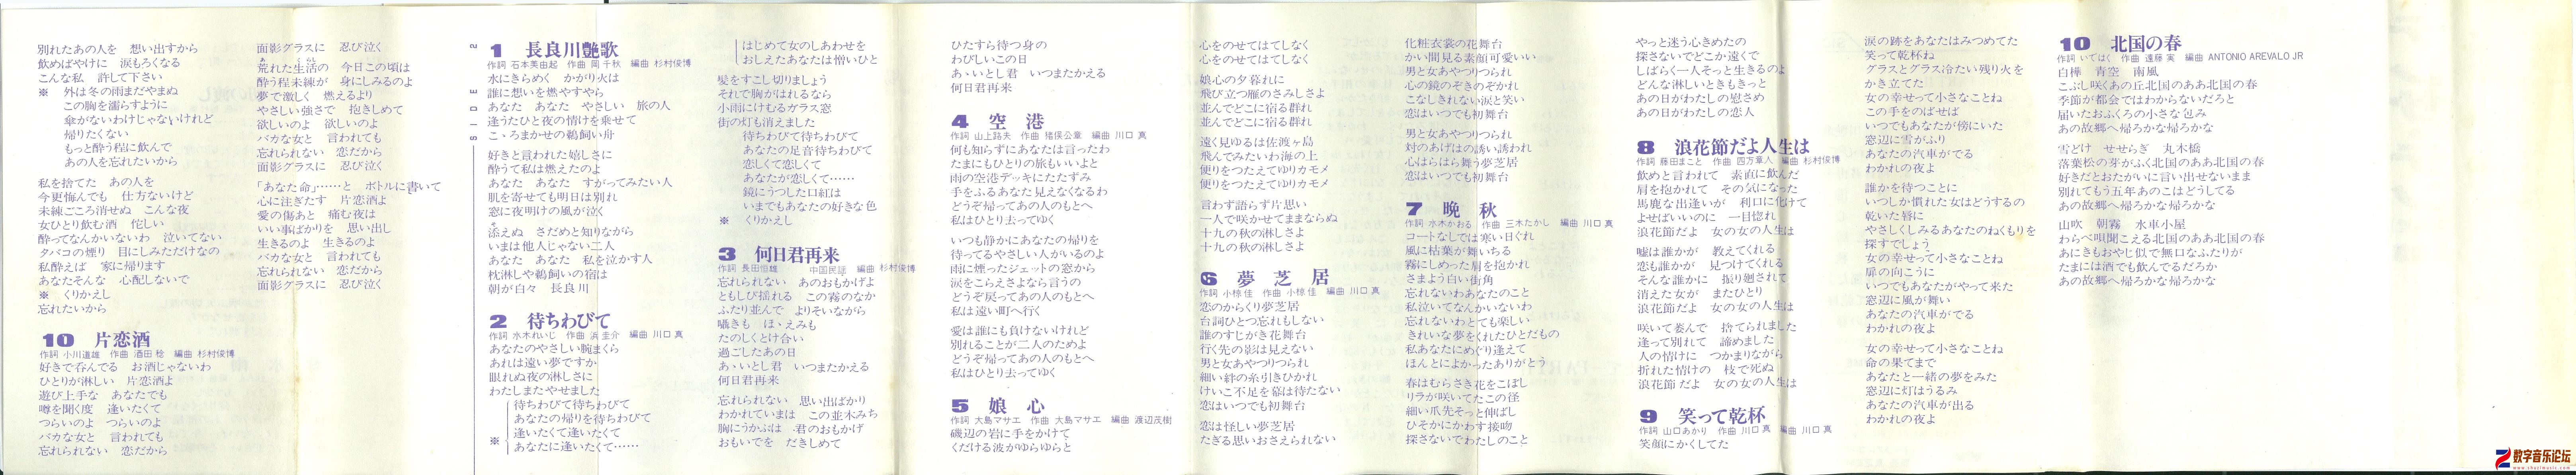 別れたあの人を　想い出すから
飲めばやけに　涙もろくなる
こんな私　許して下さい
※　外は冬の雨まだやまぬ
この胸を濡らすように
傘がないわけじゃないけれど
帰りたくない
もっと酔う程に飲んで
あの人を忘れたいから
私を捨てた　あの人を
今更悔んでも　仕方ないけど
未練ごころ消せぬ　こんな夜
女ひとり飲む酒　侘しい
酔ってなんかいないわ　泣いてない
タバコの煙り　目にしみただけなの
私酔えば　家に帰ります
あなたそんな　心配しないで
※　くりかえし
忘れたいから
10　片恋酒
作詞 小川道雄　作曲 酒田 稔　編曲 杉村俊博
好きで呑んでる　お酒じゃないわ
ひとりが淋しい　片恋酒よ
遊び上手な　あなたでも
噂を聞く度　逢いたくて
つらいのよ　つらいのよ
バカな女と　言われても
忘れられない　恋だから
面影グラスに　忍び泣く
荒れた生活の　今日この頃は
酔う程未練が　身にしみるのよ
夢で激しく　燃えるより
やさしい強さで　抱きしめて
欲しいのよ　欲しいのよ
バカな女と　言われても
忘れられない　恋だから
面影グラスに　忍び泣く
「あなた命」……と　ボトルに書いて
心に注ぎたす　片恋酒よ
愛の傷あと　痛む夜は
いい事ばかりを　思い出し
生きるのよ　生きるのよ
バカな女と　言われても
忘れられない　恋だから
面影グラスに　忍び泣く
SIDE 2
1　長良川艶歌
作詞 石本美由起　作曲 岡 千秋　編曲 杉村俊博
水にきらめく　かがり火は
誰に想いを燃やすやら
あなた　あなた　やさしい　旅の人
逢うたひと夜の情けを乗せて
こゝろまかせの鵜飼い舟
好きと言われた嬉しさに
酔うて私は燃えたのよ
あなた　あなた　すがってみたい人
肌を寄せても明日は別れ
窓に夜明けの風が泣く
添えぬ　さだめと知りながら
いまは他人じゃない二人
あなた　あなた　私を泣かす人
枕淋しや鵜飼いの宿は
朝が白々　長良川
2　待ちわびて
作詞 水木れいじ　作曲 浜 圭介　編曲 川口 真
あなたのやさしい腕まくら
あれは遠い夢ですか
眠れぬ夜の淋しさに
わたしまたやせました
※　待ちわびて待ちわびて
あなたの帰りを待ちわびて
逢いたくて逢いたくて
あなたに逢いたくて……
はじめて女のしあわせを
おしえたあなたは憎いひと
髪をすこし切りましょう
それで胸がはれるなら
小雨にけむるガラス窓
街の灯も消えました
待ちわびて待ちわびて
あなたの足音待ちわびて
恋しくて恋しくて
あなたが恋しくて……
鏡にうつした口紅は
いまでもあなたの好きな色
※　くりかえし
3　何日君再来
作詞 長田恒雄　中国民謡　編曲 杉村俊博
忘れられない　あのおもかげよ
ともしび揺れる　この霧のなか
ふたり並んで　よりそいながら
囁きも　ほゝえみも
たのしくとけ合い
過ごしたあの日
あゝいとし君　いつまたかえる
何日君再来
忘れられない　思い出ばかり
わかれていまは　この並木みち
胸にうかぶは　君のおもかげ
おもいでを　だきしめて
ひたすら待つ身の
わびしいこの日
あゝいとし君　いつまたかえる
何日君再来
4　空　港
作詞 山上路夫　作曲 猪俣公章　編曲 川口 真
何も知らずにあなたは言ったわ
たまにもひとりの旅もいいよと
雨の空港デッキにたたずみ
手をふるあなた見えなくなるわ
どうぞ帰ってあの人のもとへ
私はひとり去ってゆく
いつも静かにあなたの帰りを
待ってるやさしい人がいるのよ
雨に煙ったジェットの窓から
涙をこらえさよなら言うの
どうぞ戻ってあの人のもとへ
私は遠い町へ行く
愛は誰にも負けないけれど
別れることが二人のためよ
どうぞ帰ってあの人のもとへ
私はひとり去ってゆく
5　娘　心
作詞 大島マサエ　作曲 大島マサエ　編曲 渡辺茂樹
磯辺の岩に手をかけて
くだける波がゆらゆらと
心をのせてはてしなく
心をのせてはてしなく
娘心の夕暮れに
飛び立つ雁のさみしさよ
並んでどこに宿る群れ
並んでどこに宿る群れ
遠く見ゆるは佐渡ヶ島
飛んでみたいわ海の上
便りをつたえてゆりカモメ
便りをつたえてゆりカモメ
言わず語らず片思い
一人で咲かせてままならぬ
十九の秋の淋しさよ
十九の秋の淋しさよ
6　夢　芝　居
作詞 小椋 佳　作曲 小椋 佳　編曲 川口 真
恋のからくり夢芝居
台詞ひとつ忘れもしない
誰のすじがき花舞台
行く先の影は見えない
男と女あやつりつられ
細い絆の糸引きひかれ
けいこ不足を幕は待たない
恋はいつでも初舞台
恋は怪しい夢芝居
たぎる思いおさえられない
化粧衣裳の花舞台
かい間見る素顔可愛いい
男と女あやつりつられ
心の鏡のぞきのぞかれ
こなしきれない涙と笑い
恋はいつでも初舞台
男と女あやつりつられ
対のあげはの誘い誘われ
心はらはら舞う夢芝居
恋はいつでも初舞台
7　晩　秋
作詞 水木かおる　作曲 三木たかし　編曲 川口 真
コートなしでは寒い日ぐれ
風に枯葉が舞いちる
霧にしめった肩を抱かれ
さまよう白い街角
忘れないわあなたのこと
私泣いてなんかいないわ
忘れないわとても楽しい
きれいな夢をくれたひとだもの
私あなたにめぐり逢えて
ほんとによかったありがとう
春はむらさき花をこぼし
リラが咲いてたこの径
細い爪先そっと伸ばし
ひそかにかわす接吻
探さないでわたしのこと
やっと迷う心きめたの
探さないでどこか遠くで
しばらく一人そっと生きるのよ
どんな淋しいときもきっと
あの日がわたしの慰さめ
あの日がわたしの恋人
8　浪花節だよ人生は
作詞 藤田まこと　作曲 四方章人　編曲 杉村俊博
飲めと言われて　素直に飲んだ
肩を抱かれて　その気になった
馬鹿な出逢いが　利口に化けて
よせばいいのに　一目惚れ
浪花節だよ　女の女の人生は
嘘は誰かが　教えてくれる
恋も誰かが　見つけてくれる
そんな誰かに　振り廻されて
消えた女が　またひとり
浪花節だよ　女の女の人生は
咲いて萎んで　捨てられました
逢って別れて　諦めました
人の情けに　つかまりながら
折れた情けの　枝で死ぬ
浪花節だよ　女の女の人生は
9　笑って乾杯
作詞 山口あかり　作曲 川口 真　編曲 川口 真
笑顔にかくしてた
涙の跡をあなたはみつめてた
笑って乾杯ね
グラスとグラス冷たい残り火を
かき立てた
女の幸せって小さなことね
この手をのばせば
いつでもあなたが傍にいた
窓辺に雪がふり
あなたの汽車がでる
わかれの夜よ
誰かを待つことに
いつしか慣れた女はどうするの
乾いた唇に
やさしくしみるあなたのねくもりを
探すでしょう
女の幸せって小さなことね
扉の向こうに
いつでもあなたがやって来た
窓辺に風が舞い
あなたの汽車がでる
わかれの夜よ
女の幸せって小さなことね
命の果てまで
あなたと一緒の夢をみた
窓辺に灯はうるみ
あなたの汽車が出る
わかれの夜よ
10　北国の春
作詞 いではく　作曲 遠藤 実　編曲 ANTONIO AREVALO JR
白樺　青空　南風
こぶし咲くあの丘北国のああ北国の春
季節が都会ではわからないだろと
届いたおふくろの小さな包み
あの故郷へ帰ろかな帰ろかな
雪どけ　せせらぎ　丸木橋
落葉松の芽がふく北国のああ北国の春
好きだとおたがいに言い出せないまま
別れてもう五年あのこはどうしてる
あの故郷へ帰ろかな帰ろかな
山吹　朝霧　水車小屋
わらべ唄聞こえる北国のああ北国の春
あにきもおやじ似で無口なふたりが
たまには酒でも飲んでるだろか
あの故郷へ帰ろかな帰ろかな
数字音乐论坛